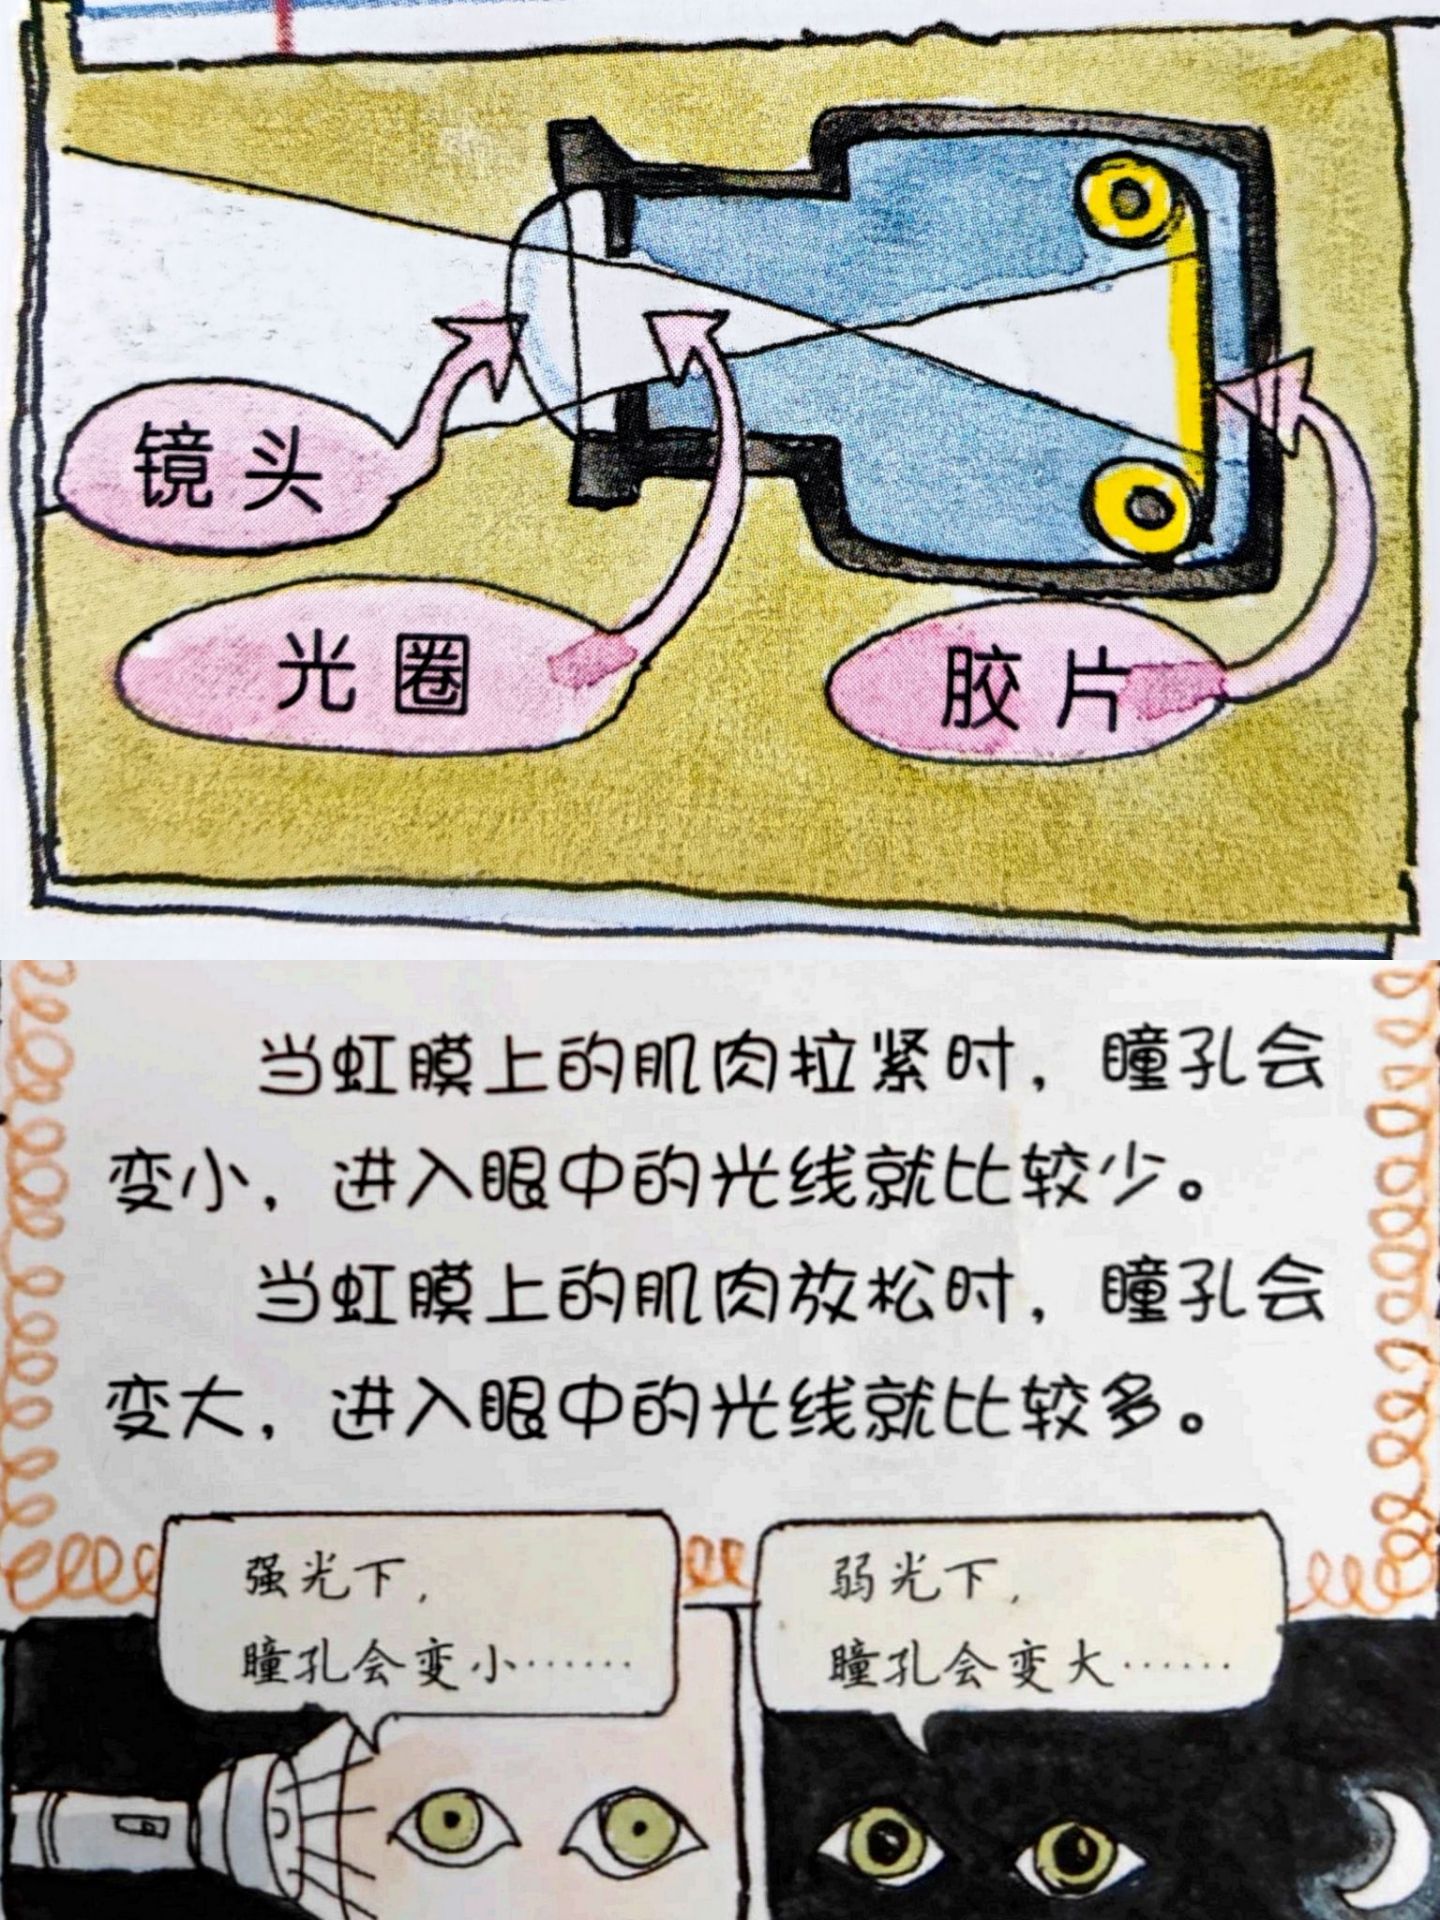 镜头
光圈
胶片
当虹膜上的肌肉拉紧时，瞳孔会
变小，进入眼中的光线就比较少。
当虹膜上的肌肉放松时，瞳孔会
变大，进入眼中的光线就比较多。
强光下，
瞳孔会变小……
弱光下，
瞳孔会变大……